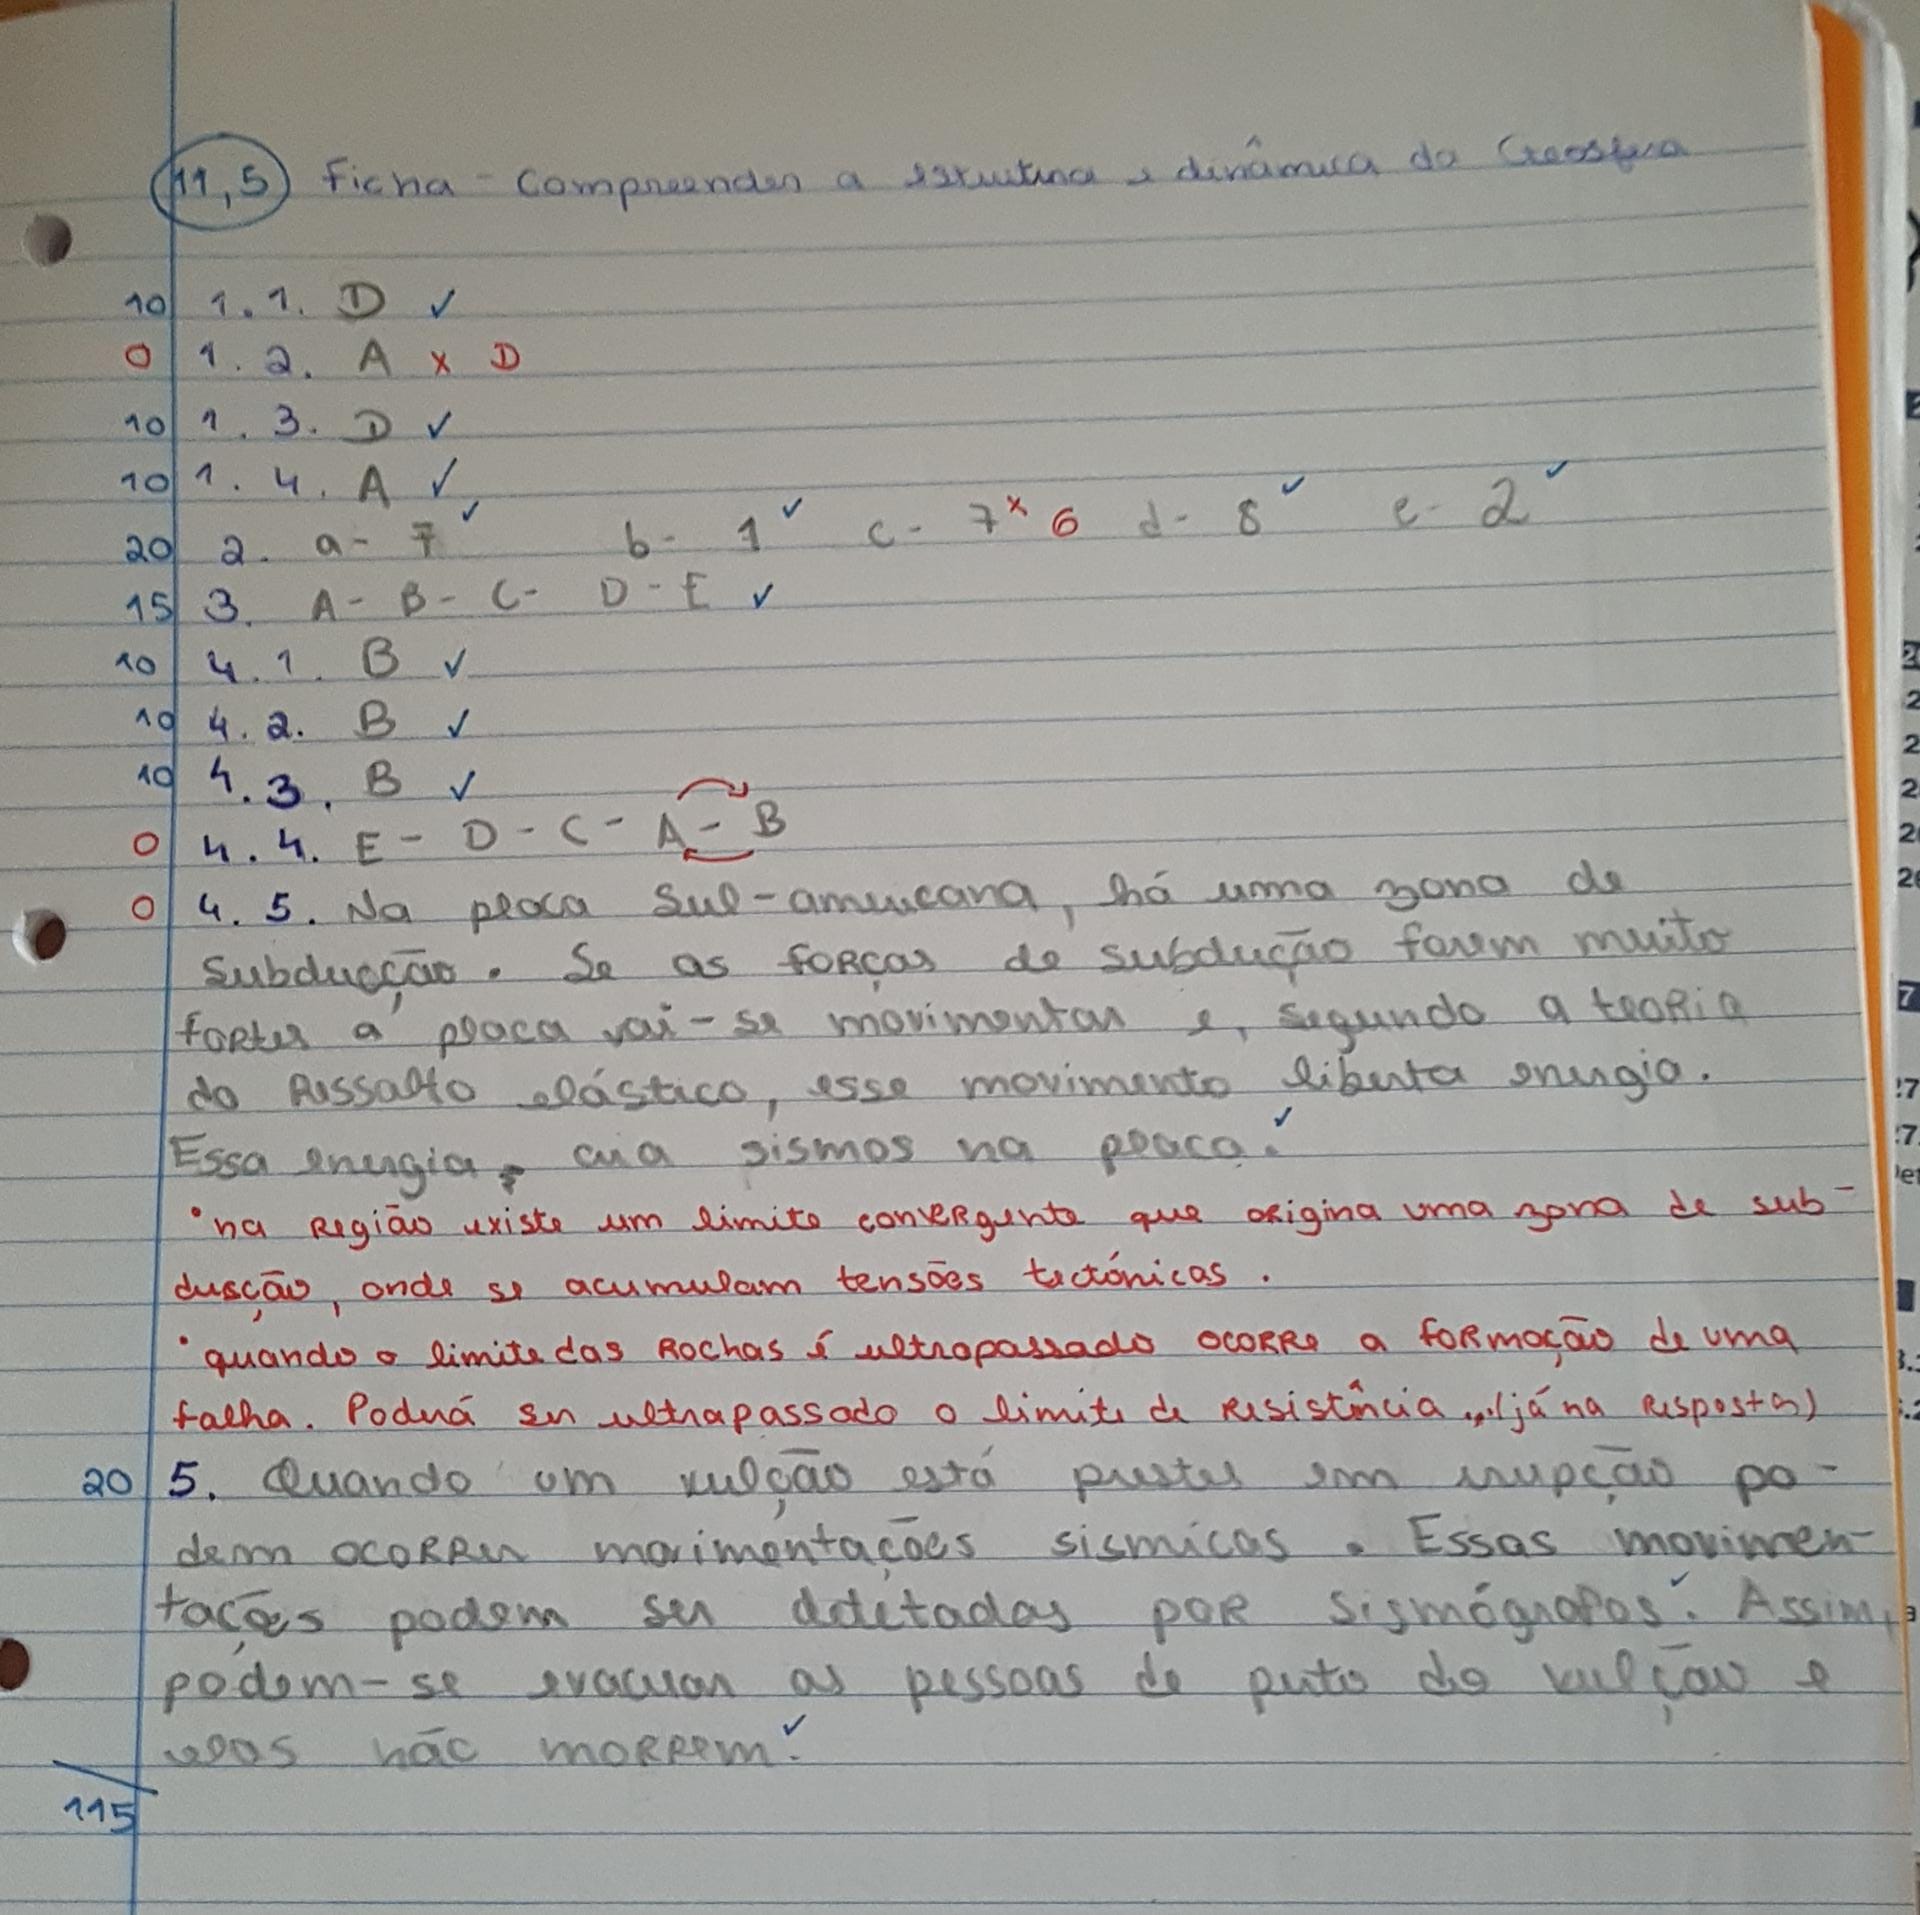 11,5 Ficha - Compreender a estrutura e dinâmica da Geosfera
10 1.1. D ✓
0 1.2. A x D
10 1.3. D ✓
10 1.4. A ✓
20 2. a - 7 ✓ b - 1 ✓ c - 7 x 6 d - 8 ✓ e - 2 ✓
15 3. A - B - C - D - E ✓
10 4.1. B ✓
10 4.2. B ✓
10 4.3. B ✓
0 4.4. E - D - C - A - B
0 4.5. Na placa Sul-americana, há uma zona de
subducção. Se as forças de subdução forem muito
fortes a placa vai-se movimentar e, segundo a teoria
do Ressalto elástico, esse movimento liberta energia.
Essa energia, cria sismos na placa. ✓
• na região existe um limite convergente que origina uma zona de sub-
dusção, onde se acumulam tensões tectónicas.
• quando o limite das rochas é ultrapassado ocorre a formação de uma
falha. Poderá ser ultrapassado o limite de resistência ... (já na resposta)
20 5. Quando um vulção está prestes em erupção po-
dem ocorrer movimentações sísmicas. Essas movimen-
tações podem ser detetadas por sismógrafos ✓. Assim,
podem-se evacuar as pessoas de perto do vulção e
elas não morrem. ✓
115